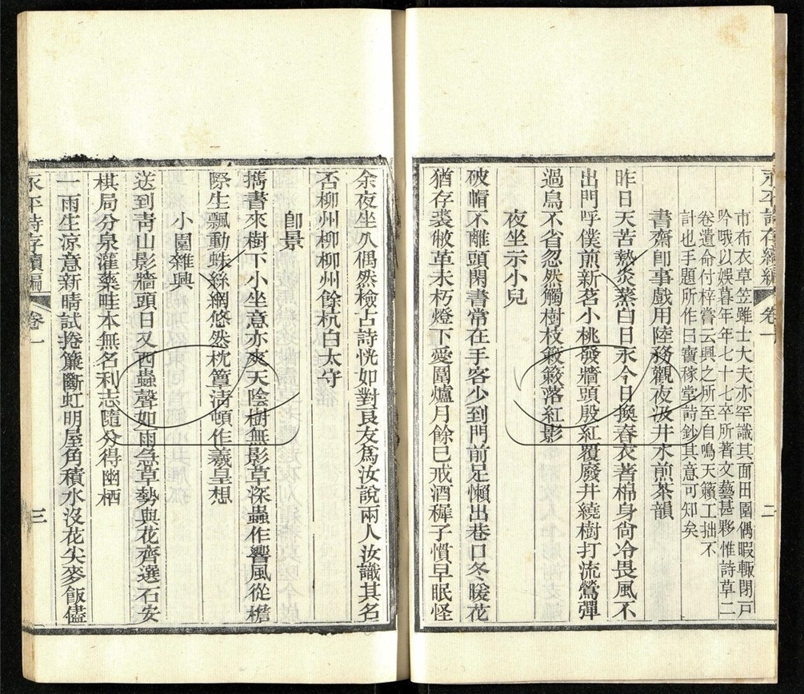 永平詩存續編 卷一 二
市布衣草笠雖士大夫亦罕識其面田園偶暇輙閉戸
吟哦以娛暮年年七十七卒所著文藝甚夥惟詩草二
卷遺命付梓嘗云興之所至自鳴天籟工拙不
計也手題所作曰寶稼堂詩鈔其意可知矣
書齋卽事戲用陸務觀夜汲井水煎茶韻
昨日天苦熱炎蒸白日永今日換春衣著棉身尙冷畏風不
出門呼僕煎新茗小桃發牆頭殷紅覆廢井繞樹打流鶯彈
過鳥不省忽然觸樹枝簌簌落紅影
夜坐示小兒
破帽不離頭閑書常在手客少到門前足懶出巷口冬暖花
猶存裘敝革未朽燈下愛圍爐月餘已戒酒穉子慣早眠怪
余夜坐久偶然檢占詩恍如對良友爲汝說兩人汝識其名
否柳州柳柳州餘杭白太守
卽景
攜書來樹下小坐意亦爽天陰樹無影草深蟲作響風從檐
際生飄動蛛絲網悠然枕簟淸頓作羲皇想
小園雜興
送到靑山影牆頭日又西蟲聲如雨急草勢與花齊選石安
棋局分泉灌藥畦本無名利志隨分得幽栖
一雨生涼意新晴試捲簾斷虹明屋角積水沒花尖麥飯儘
永平詩存續編 卷一 三